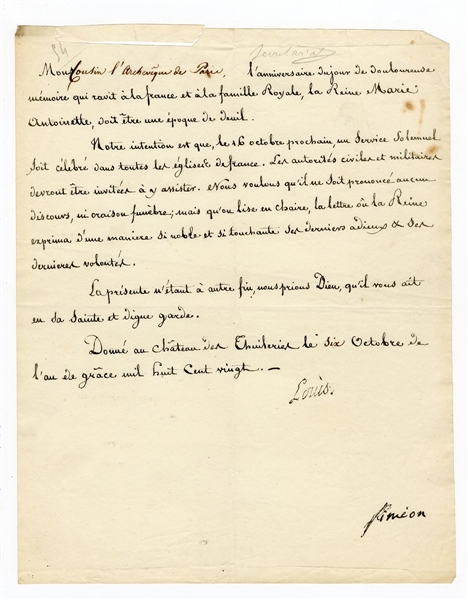 54
Secretariat
Mon Cousin l'Archevêque de Paris, l'anniversaire du jour de douloureuse
mémoire qui ravit à la france et à la famille Royale, la Reine Marie
Antoinette, doit être une époque de deuil.
Notre intention est que, le 16 octobre prochain, un Service Solemnel
soit célébré dans toutes les églises de france. Les autorités civiles et militaires
devront être invitées à y assister. Nous voulons qu'il ne soit prononcé aucun
discours, ni oraison funèbre; mais qu'on lise en chaire, la lettre où la Reine
exprima d'une maniere si noble et si touchante ses derniers adieux & ses
dernieres volontés.
La présente n'étant à autre fin, nous prions Dieu, qu'il vous ait
en sa Sainte et digne garde.
Donné au Château des Thuileries le six Octobre de
l'an de grâce mil huit Cent vingt. —
Louis.
Siméon